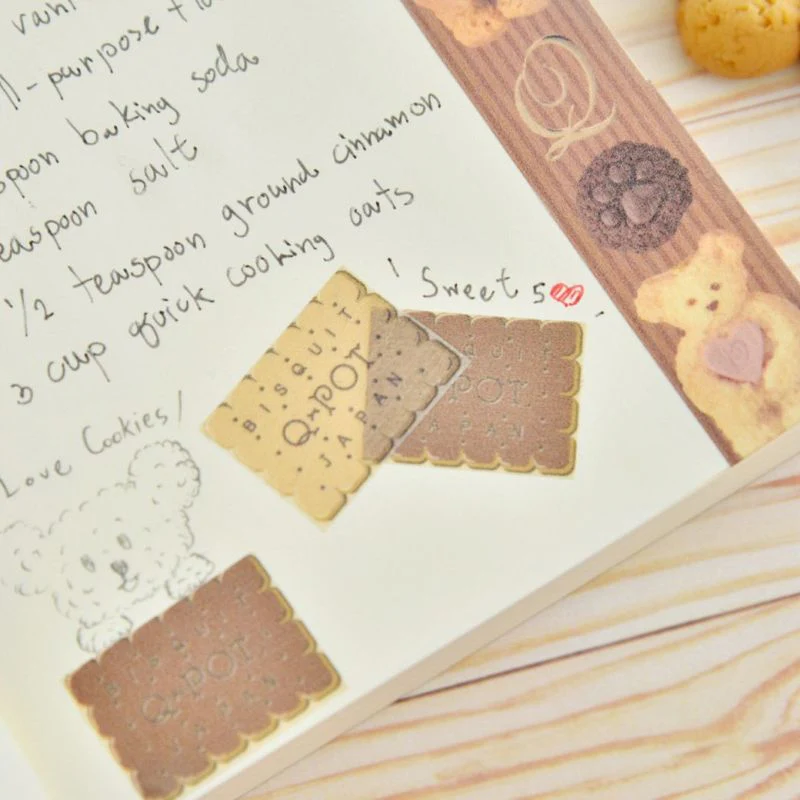 vani
ll-purpose flo
spoon baking soda
easpoon salt
1/2 teaspoon ground cinnamon
3 cup quick cooking oats
Sweet 5
Love Cookies!
BISQUIT
Q-POT
JAPAN
QUIT
POT
APAN
BISQUIT
Q-POT
JAPAN
Q